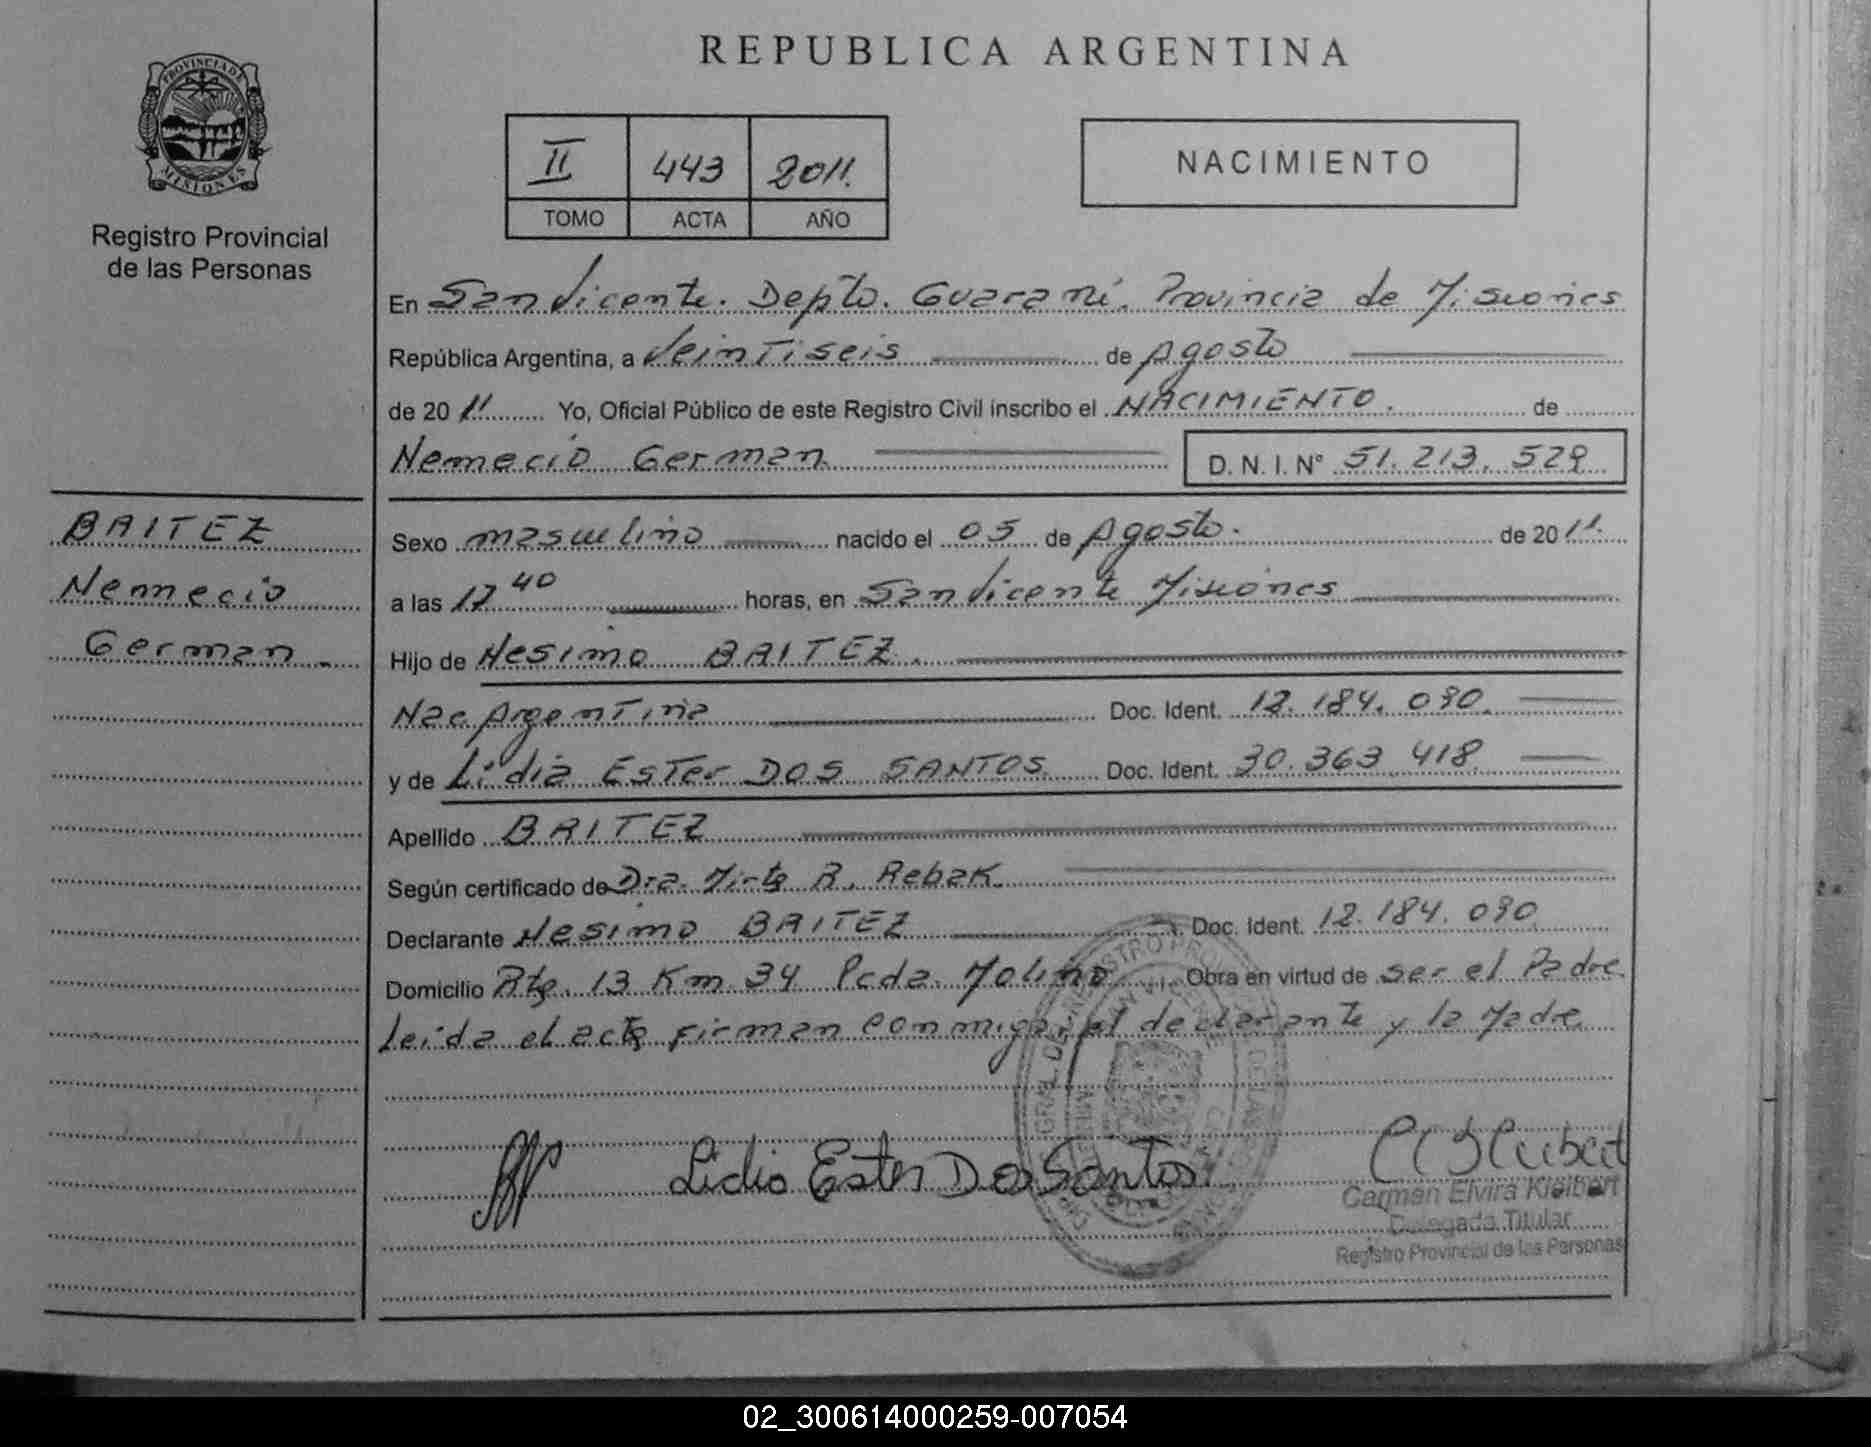 PROVINCIA DE
MISIONES
Registro Provincial
de las Personas
BAITEZ
Nemecio
German
REPUBLICA ARGENTINA
II 443 2011.
TOMO ACTA AÑO
NACIMIENTO
En San Vicente. Depto. Guarani. Provincia de Misiones
República Argentina, a Veintiseis de Agosto
de 20 11 Yo, Oficial Público de este Registro Civil inscribo el NACIMIENTO. de
Nemecio German. D. N. I. N° 51.213.529
Sexo masculino nacido el 05 de Agosto. de 20 11.
a las 17 40 horas, en San Vicente Misiones
Hijo de Nesimo BAITEZ.
Nac Argentina Doc. Ident. 12.184.090.
y de Lidia Ester DOS SANTOS Doc. Ident. 30.363.418
Apellido BAITEZ
Según certificado de Dra. Mirta R. Rebak.
Declarante Nesimo BAITEZ Doc. Ident. 12.184.090
Domicilio Rta. 13 Km 34 Pcda. Molino Obra en virtud de ser el Padre.
Leida el acta firman conmigo, el declarante y la Madre
Lidia Ester Dos Santos
Carmen Elvira Kleibert
Delegada Titular
Registro Provincial de las Personas
02_300614000259-007054